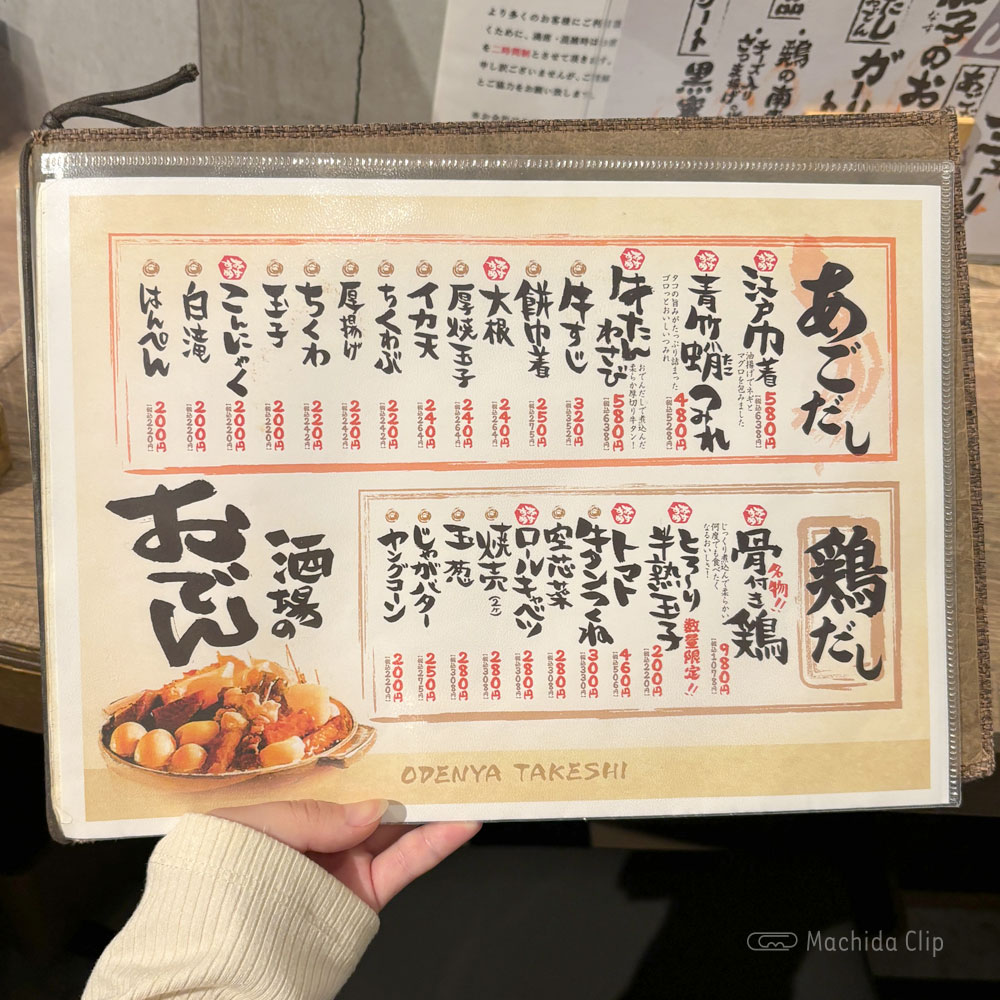 より多くのお客様にご利用頂
くために、満席・混雑時はお席
を二時間制とさせて頂きます。
申し訳ございませんが、ご理解
とご協力をお願い致します。
あごだし
江戸巾着
油揚げでネギと
マグロを包みました
580円
(税込638円)
青竹蛸つみれ
たこ
タコの旨みがたっぷり詰まった
ゴロっとおいしいつみれ
480円
(税込528円)
牛たんわさび
おでんだしで煮込んだ
柔らか厚切り牛タン!
580円
(税込638円)
牛すじ
320円
(税込352円)
餅巾着
250円
(税込275円)
大根
240円
(税込264円)
厚焼玉子
240円
(税込264円)
イカ天
240円
(税込264円)
ちくわぶ
220円
(税込242円)
厚揚げ
220円
(税込242円)
ちくわ
220円
(税込242円)
玉子
200円
(税込220円)
こんにゃく
200円
(税込220円)
白滝
200円
(税込220円)
はんぺん
200円
(税込220円)
鶏だし
名物!!
骨付き鶏
じっくり煮込んで柔らかい
何度でも食べたく
なるおいしさ!
980円
(税込1078円)
とろ〜り半熟玉子
数量限定!!
200円
(税込220円)
トマト
460円
(税込506円)
牛タンつくね
300円
(税込330円)
空芯菜
280円
(税込308円)
ロールキャベツ
280円
(税込308円)
焼売(2ケ)
280円
(税込308円)
玉葱
280円
(税込308円)
じゃがバター
250円
(税込275円)
ヤングコーン
200円
(税込220円)
酒場の
おでん
ODENYA TAKESHI
Machida Clip